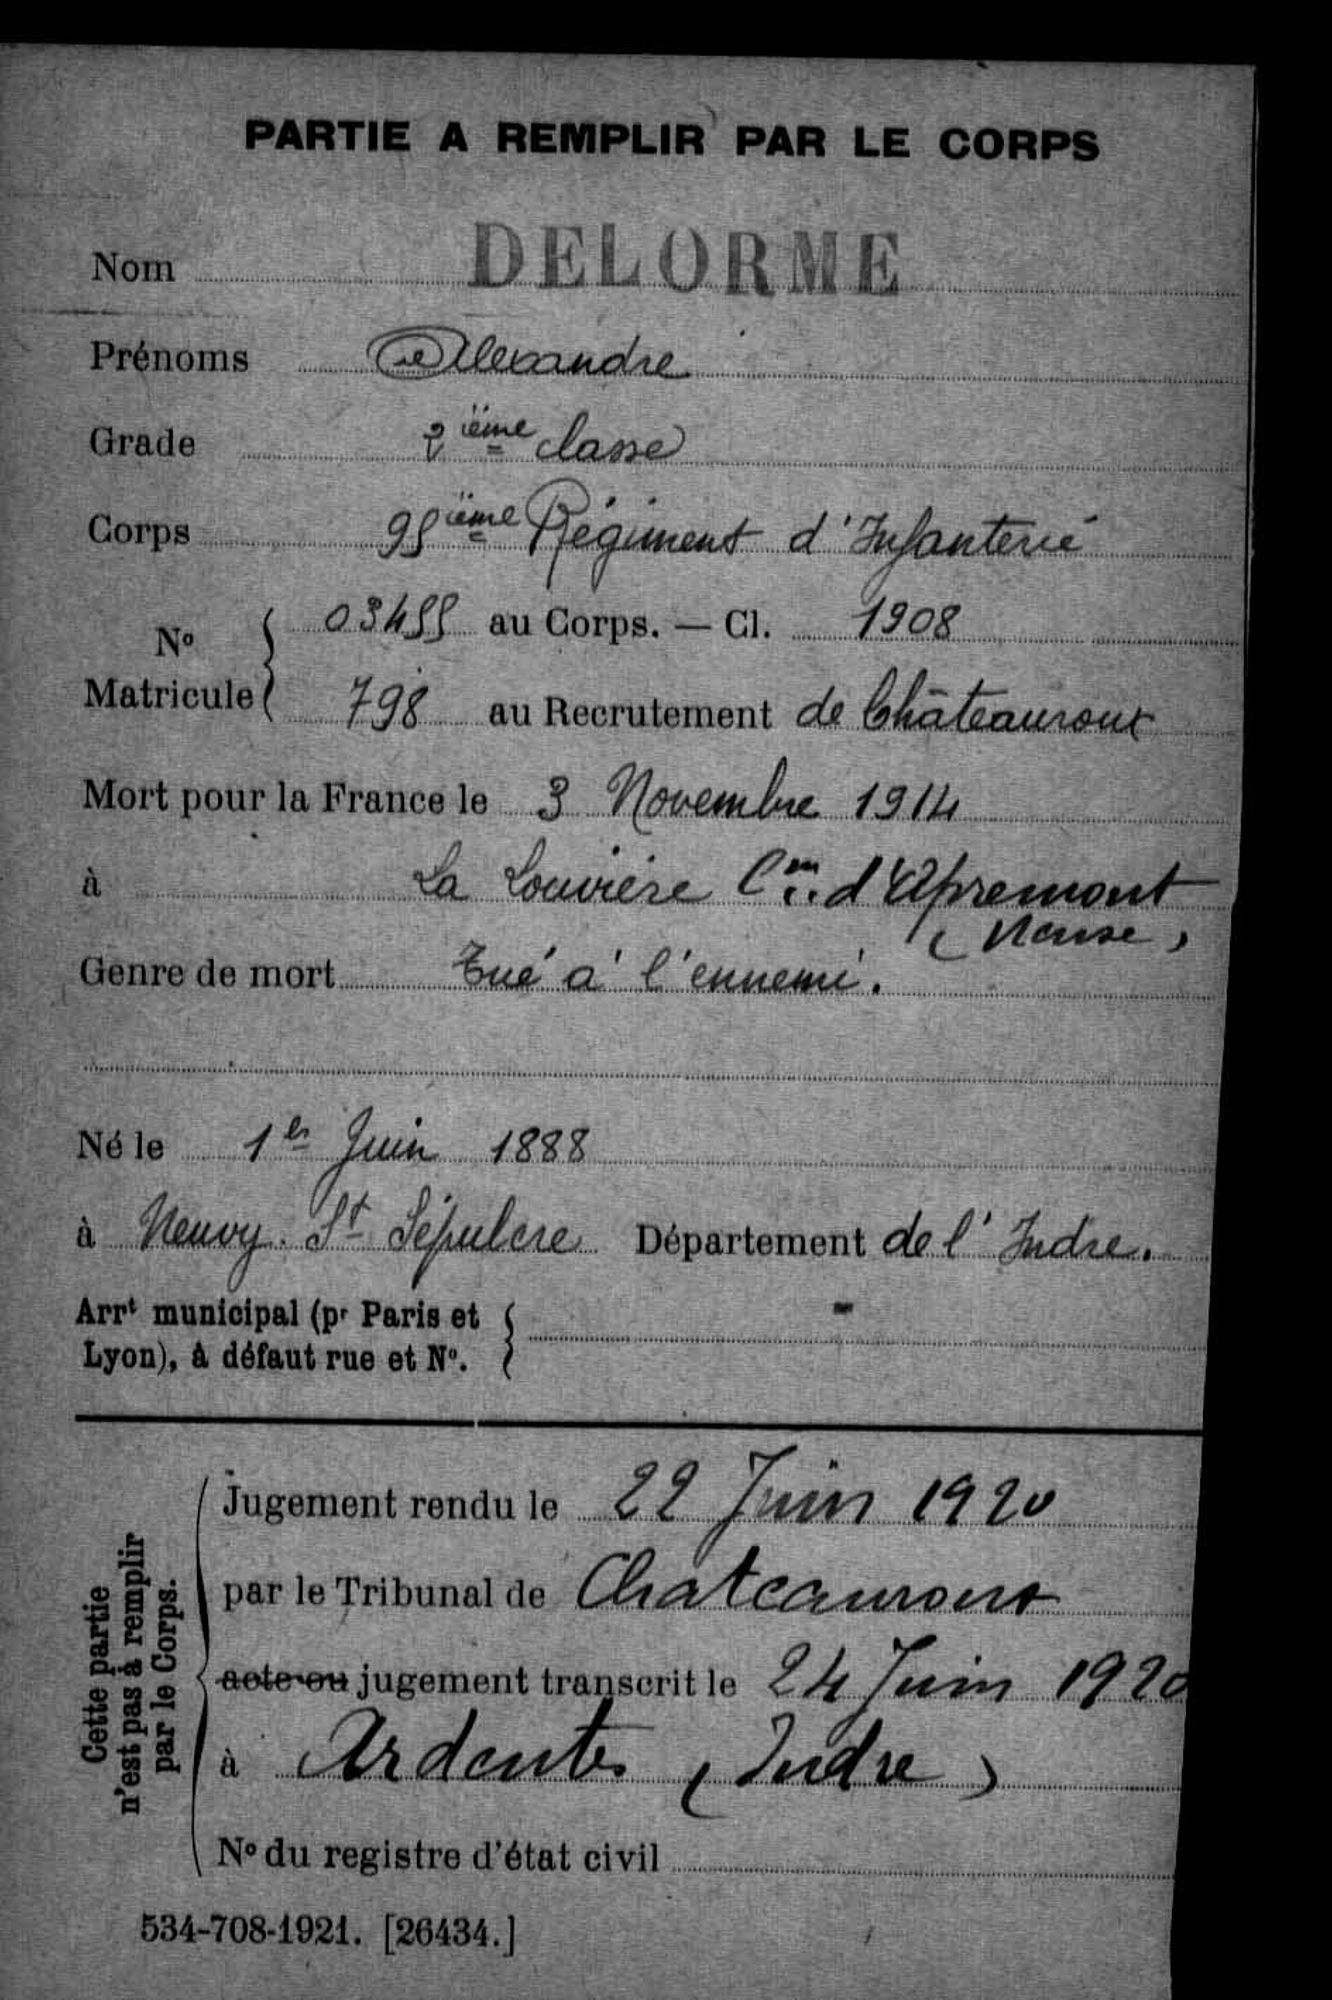 PARTIE A REMPLIR PAR LE CORPS
Nom DELORME
Prénoms Alexandre
Grade 2ième classe
Corps 95ième Régiment d'Infanterie
No Matricule { 03455 au Corps. — Cl. 1908
798 au Recrutement de Châteauroux
Mort pour la France le 3 Novembre 1914
à La Louvière Cne d'Apremont
(Meuse)
Genre de mort Tué à l'ennemi.
Né le 1er Juin 1888
à Neuvy. St Sépulcre Département de l'Indre.
Arrt municipal (pr Paris et
Lyon), à défaut rue et No. { -
Cette partie
n'est pas à remplir
par le Corps.
Jugement rendu le 22 Juin 1920
par le Tribunal de Chateauroux
acte ou jugement transcrit le 24 Juin 1920
à Ardentes (Indre)
No du registre d'état civil
534-708-1921. [26434.]